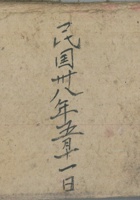 民国卅八年五月十一日